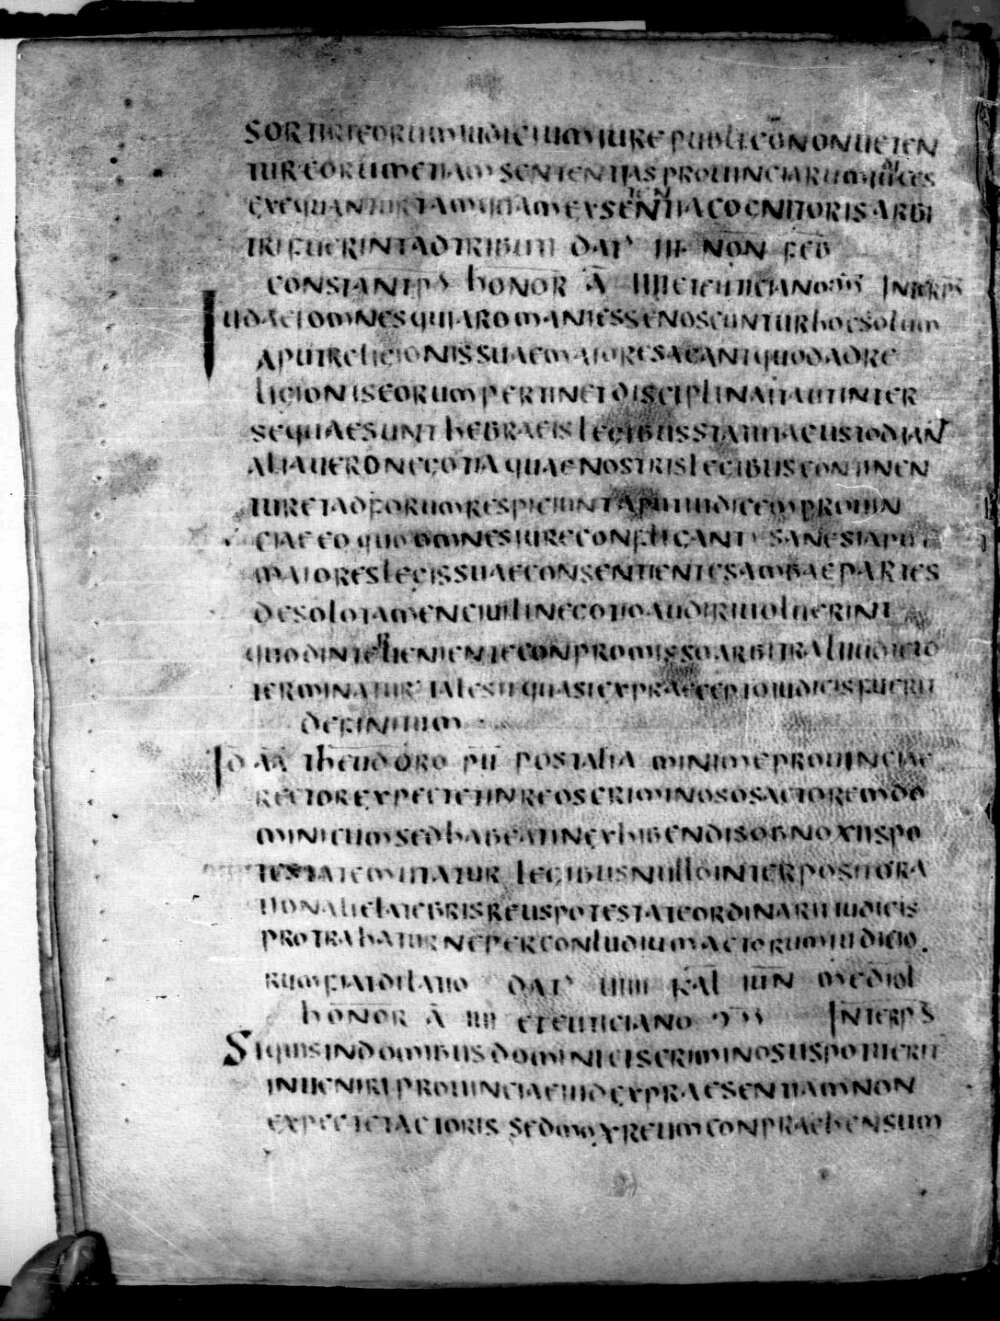 SORTIRI EORUM IUDICIUM IURE PUBLICO NON UETEN
TUR EORUM ETIAM SENTENTIAS PROUINCIARUM IUDICES
EXEQUANTUR TAMQUAM EX SENTENTIA COGNITORIS ARBI
TRI FUERINT ADTRIBUTI DAT III NON FEB
CONSTANTIP HONOR A IIII ET EUTICIANO INTERP
IUDAEI OMNES QUI A ROMANI ESSE NOSCUNTUR HOC SOLUM
APUT RELIGIONIS SUAE MAIORES AGANT QUOD AD RE
LIGIONIS EORUM PERTINET DISCIPLINAM ITA UT INTER
SE QUAE SUNT HEBRAEIS LEGIBUS STATUTA CUSTODIANT
ALIA UERO NEGOTIA QUAE NOSTRIS LEGIBUS CONTINEN
TUR ET AD FORUM RESPICIUNT APUT IUDICEM PROUIN
CIAE EO QUO OMNES IURE CONFLIGANT SANE SI APUT
MAIORES LEGIS SUAE CONSENTIENTES AMBAE PARTES
DE SOLO TAMEN CIUILI NEGOTIO AUDIRI UOLUERINT
QUOD INTERUENIENTE CONPROMISSO ARBITRALI IUDICIO
TERMINATUR TALE SIT QUASI EX PRAECEPTO IUDICIS FUERIT
DEFINITUM
ID AA THEUDORO PU POSTALIA MINIME PROUINCIAE
RECTOR EXPECTET IN REOS CRIMINOSOS ACTOREM DO
MINICUM SED HABEAT IN EXHIBENDIS OBNOXIIS PO
TESTATEM UTATUR LEGIBUS NULLO INTERPOSITO RA
TIONALI ELATEBRIS REUS POTESTATE ORDINARII IUDICIS
PROTRAHATUR NE PER CONLUDIUM ACTORUM IUDICIO
RUM FIAT DILATIO DAT UIIII KAL IUN MEDIOL
HONOR A IIII ET EUTICIANO INTERP
SI QUIS IN DOMIBUS DOMINICIS CRIMINOSUS POTUERIT
INUENIRI PROUINCIAE IUD EX PRAESENTIAM NON
EXPECTET ACTORIS SED MOX REUM CONPRAEHENSUM